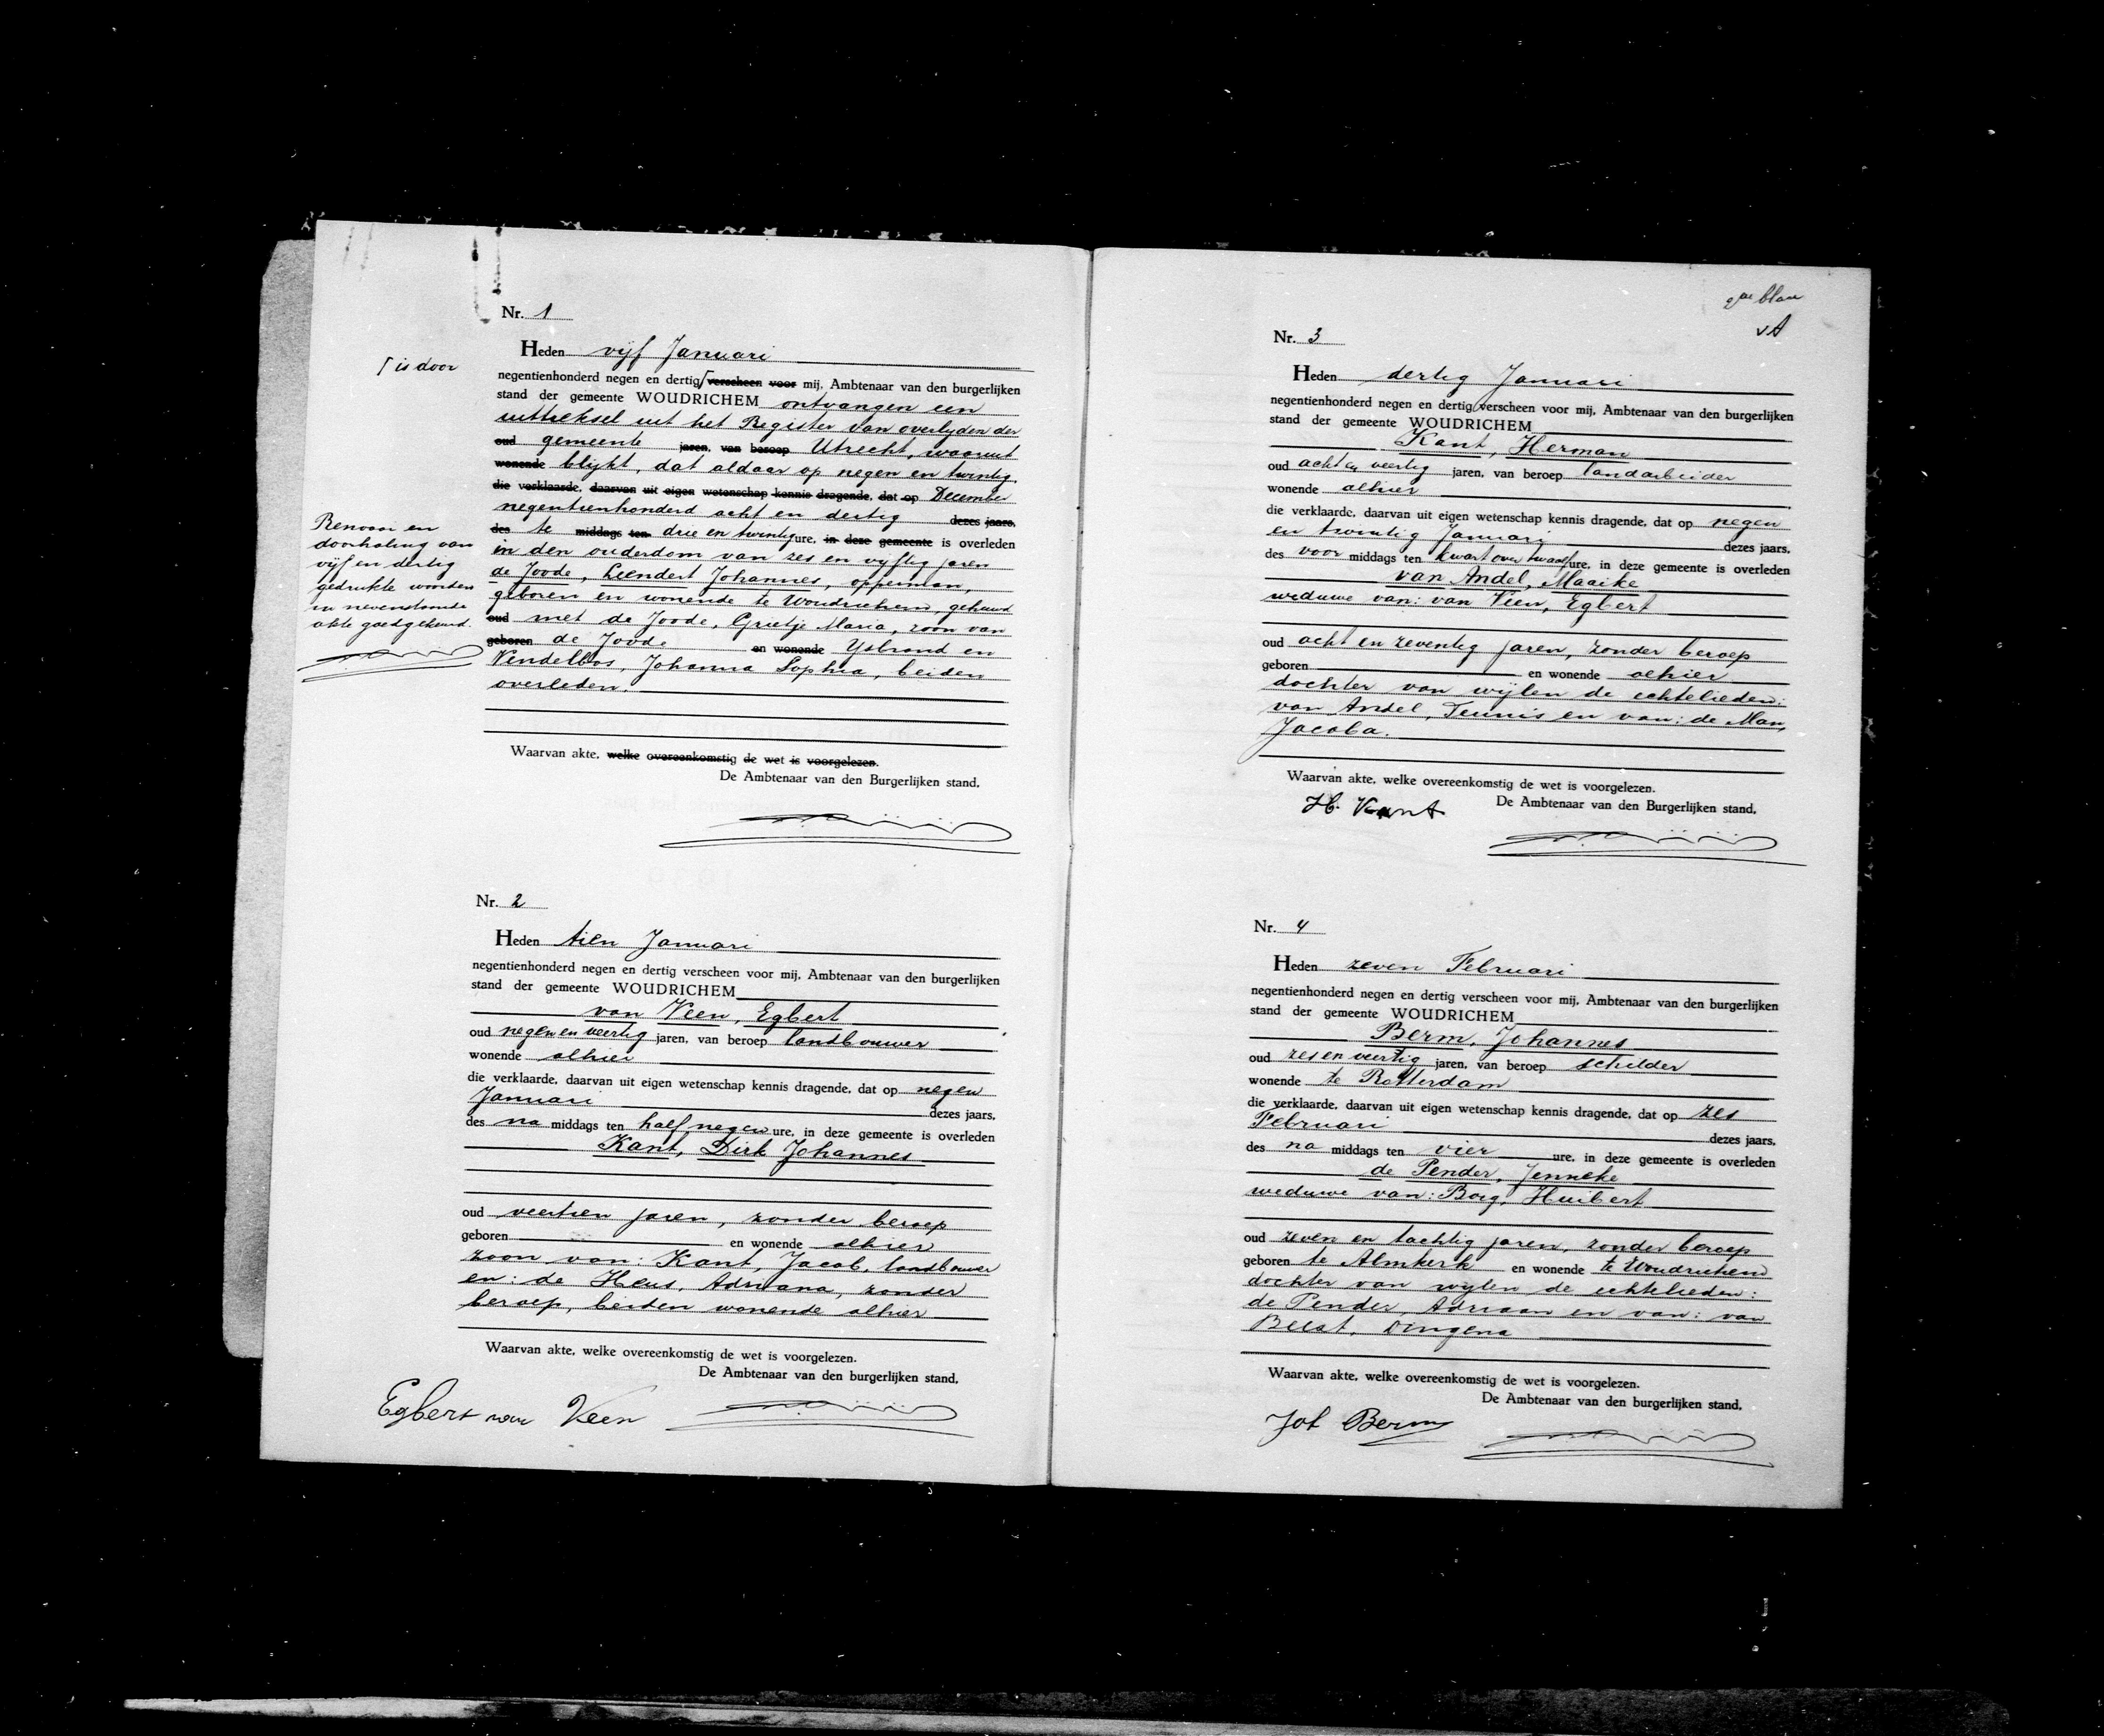 Nr. 1
Heden vijf Januari
⌈ is door
negentienhonderd negen en dertig⌈ verscheen voor mij, Ambtenaar van den burgerlijken
stand der gemeente WOUDRICHEM ontvangen een
uittreksel uit het Register van overlijden der
oud gemeente jaren, van beroep Utrecht, waaruit
wonende blijkt, dat aldaar op negen en twintig
die verklaarde, daarvan uit eigen wetenschap kennis dragende, dat op December
negentienhonderd acht en dertig dezes jaars,
des te middags ten drie en twintig ure, in deze gemeente is overleden
in den ouderdom van zes en vyftig jaren
de Joode, Leendert Johannes, opperman,
geboren en wonende te Woudrichem, gehuwd
oud met de Joode, Grietje Maria, zoon van
geboren de Joode en wonende Ysbrand en
Vendelbos, Johanna Sophia, beiden
overleden.
Renvooi en
doorhaling van
vijf en dertig
gedrukte woorden
in nevenstaande
akte goedgekeurd.
Waarvan akte, welke overeenkomstig de wet is voorgelezen.
De Ambtenaar van den Burgerlijken stand,
Nr. 2
Heden tien Januari
negentienhonderd negen en dertig verscheen voor mij, Ambtenaar van den burgerlijken
stand der gemeente WOUDRICHEM
van Veen, Egbert
oud negen en veertig jaren, van beroep landbouwer
wonende alhier
die verklaarde, daarvan uit eigen wetenschap kennis dragende, dat op negen
Januari dezes jaars,
des na middags ten half negen ure, in deze gemeente is overleden
Kant, Dirk Johannes
oud veertien jaren, zonder beroep
geboren en wonende alhier
zoon van: Kant, Jacob, landbouwer
en: de Heus, Adriana, zonder
beroep, beiden wonende alhier
Waarvan akte, welke overeenkomstig de wet is voorgelezen.
De Ambtenaar van den burgerlijken stand,
Egbert van Veen
vA
Nr. 3
Heden dertig Januari
negentienhonderd negen en dertig verscheen voor mij, Ambtenaar van den burgerlijken
stand der gemeente WOUDRICHEM
Kant, Herman
oud acht en veertig jaren, van beroep landarbeider
wonende alhier
die verklaarde, daarvan uit eigen wetenschap kennis dragende, dat op negen
en twintig Januari dezes jaars,
des voor middags ten kwart over twaalf ure, in deze gemeente is overleden
van Andel, Maaike
weduwe van: van Veen, Egbert
oud acht en zeventig jaren, zonder beroep
geboren en wonende alhier
dochter van wijlen de echtelieden:
van Andel, Teunis en van: de Man,
Jacoba.
Waarvan akte, welke overeenkomstig de wet is voorgelezen.
De Ambtenaar van den Burgerlijken stand,
H. Kant
Nr. 4
Heden zeven Februari
negentienhonderd negen en dertig verscheen voor mij, Ambtenaar van den burgerlijken
stand der gemeente WOUDRICHEM
Berm, Johannes
oud zes en veertig jaren, van beroep schilder
wonende te Rotterdam
die verklaarde, daarvan uit eigen wetenschap kennis dragende, dat op zes
Februari dezes jaars,
des na middags ten vier ure, in deze gemeente is overleden
de Pender, Jenneke
weduwe van: Borg, Huibert
oud zeven en tachtig jaren, zonder beroep
geboren te Almkerk en wonende te Woudrichem
dochter van wijlen de echtelieden:
de Pender, Adriaan en van: van
Beest, Dingena
Waarvan akte, welke overeenkomstig de wet is voorgelezen.
De Ambtenaar van den burgerlijken stand,
Joh Berm